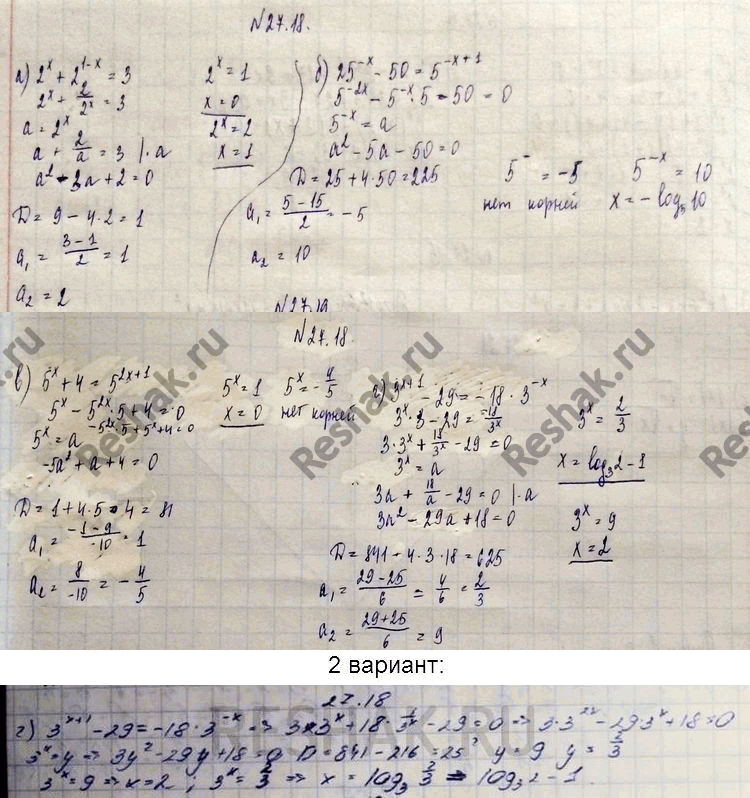 N27.18.
а) 2^x + 2^{1-x} = 3
2^x + 2/2^x = 3
a = 2^x
a + 2/a = 3 |·a
a² - 3a + 2 = 0
D = 9 - 4·2 = 1
a₁ = (3-1)/2 = 1
a₂ = 2
2^x = 1
x = 0
2^x = 2
x = 1
б) 25^{-x} - 50 = 5^{-x+1}
5^{-2x} - 5^{-x}·5 - 50 = 0
5^{-x} = a
a² - 5a - 50 = 0
D = 25 + 4·50 = 225
a₁ = (5-15)/2 = -5
a₂ = 10
5^- = -5
нет корней
5^{-x} = 10
x = -log₅10
N27.19
N27.18.
в) 5^x + 4 = 5^{2x+1}
5^x - 5^{2x}·5 + 4 = 0
-5^{2x}·5 + 5^x + 4 = 0
5^x = a
-5a² + a + 4 = 0
D = 1 + 4·5·4 = 81
a₁ = (-1-9)/-10 = 1
a₂ = 8/-10 = -4/5
5^x = 1
x = 0
5^x = -4/5
нет корней
г) 3^{x+1} - 29 = -18·3^{-x}
3^x·3 - 29 = -18/3^x
3·3^x + 18/3^x - 29 = 0
3^x = a
3a + 18/a - 29 = 0 |·a
3a² - 29a + 18 = 0
D = 841 - 4·3·18 = 625
a₁ = (29-25)/6 = 4/6 = 2/3
a₂ = (29+25)/6 = 9
3^x = 2/3
x = log₃2 - 1
3^x = 9
x = 2
Reshak.ru
Reshak.ru
Reshak.ru
2 вариант:
27.18
г) 3^{x+1} - 29 = -18·3^{-x} => 3·3^x + 18·1/3^x - 29 = 0 => 3·3^{2x} - 29·3^x + 18 = 0
3^x = y => 3y² - 29y + 18 = 0 D = 841 - 216 = 25² y = 9 y = 2/3
3^x = 9 => x = 2, 3^x = 2/3 => x = log₃ 2/3 = log₃2 - 1.
RESHAK.RU